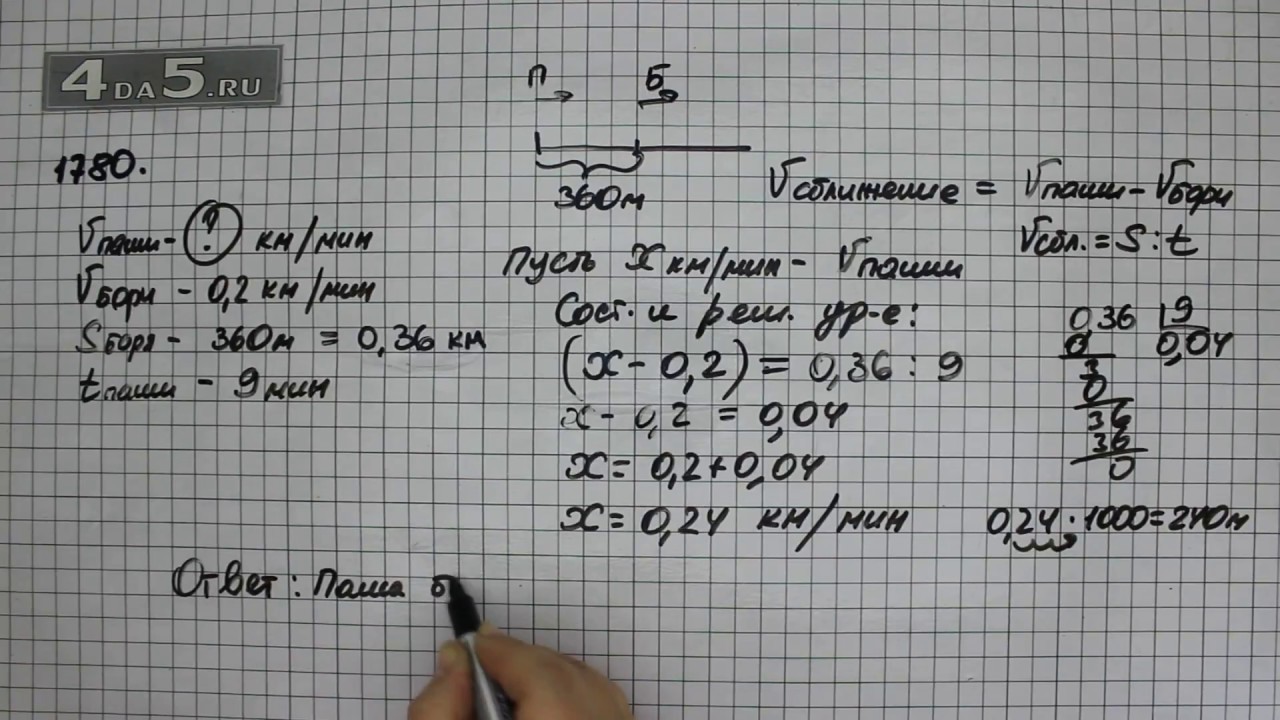 4DA5.RU
П Б
360м
1780.
Vпаши - ? км/мин
Vбори - 0,2 км/мин
Sборя - 360м = 0,36 км
tпаши - 9 мин
Vсближение = Vпаши - Vбори
Vсбл. = S : t
Пусть x км/мин - Vпаши
Сост. и реш. ур-е:
(x - 0,2) = 0,36 : 9
x - 0,2 = 0,04
x = 0,2 + 0,04
x = 0,24 км/мин
0,36 9
0 0,04
3
0
36
36
0
0,24 · 1000 = 240м
Ответ: Паша б